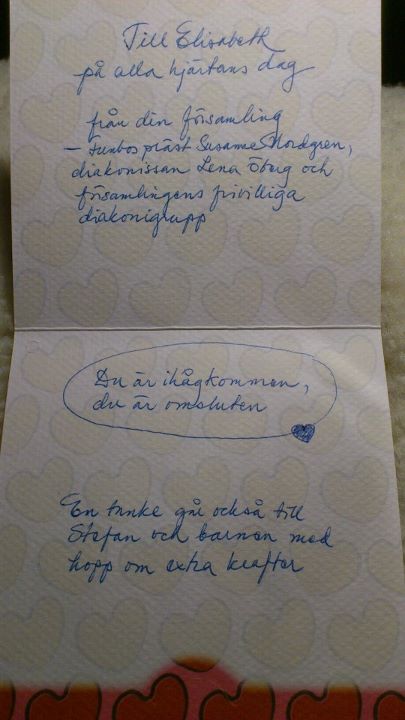 Till Elisabeth
på alla hjärtans dag
från din församling
– Funbos präst Susanne Nordgren,
diakonissan Lena Öberg och
församlingens frivilliga
diakonigrupp
Du är ihågkommen,
du är omsluten
En tanke går också till
Stefan och barnen med
hopp om extra krafter